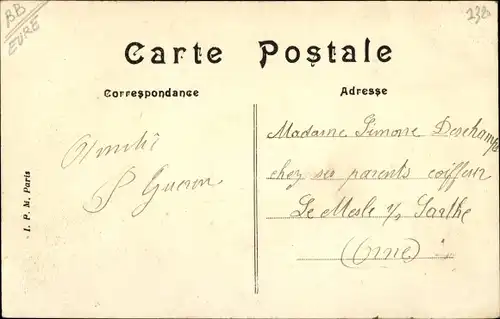 BB
EURE
238
Carte Postale
Correspondance
Adresse
Amitié
P Gueron
Madame Simone Deschamps
chez ses parents coiffeur
Le Mesle s/ Sarthe
(Orne)
I. P. M. Paris